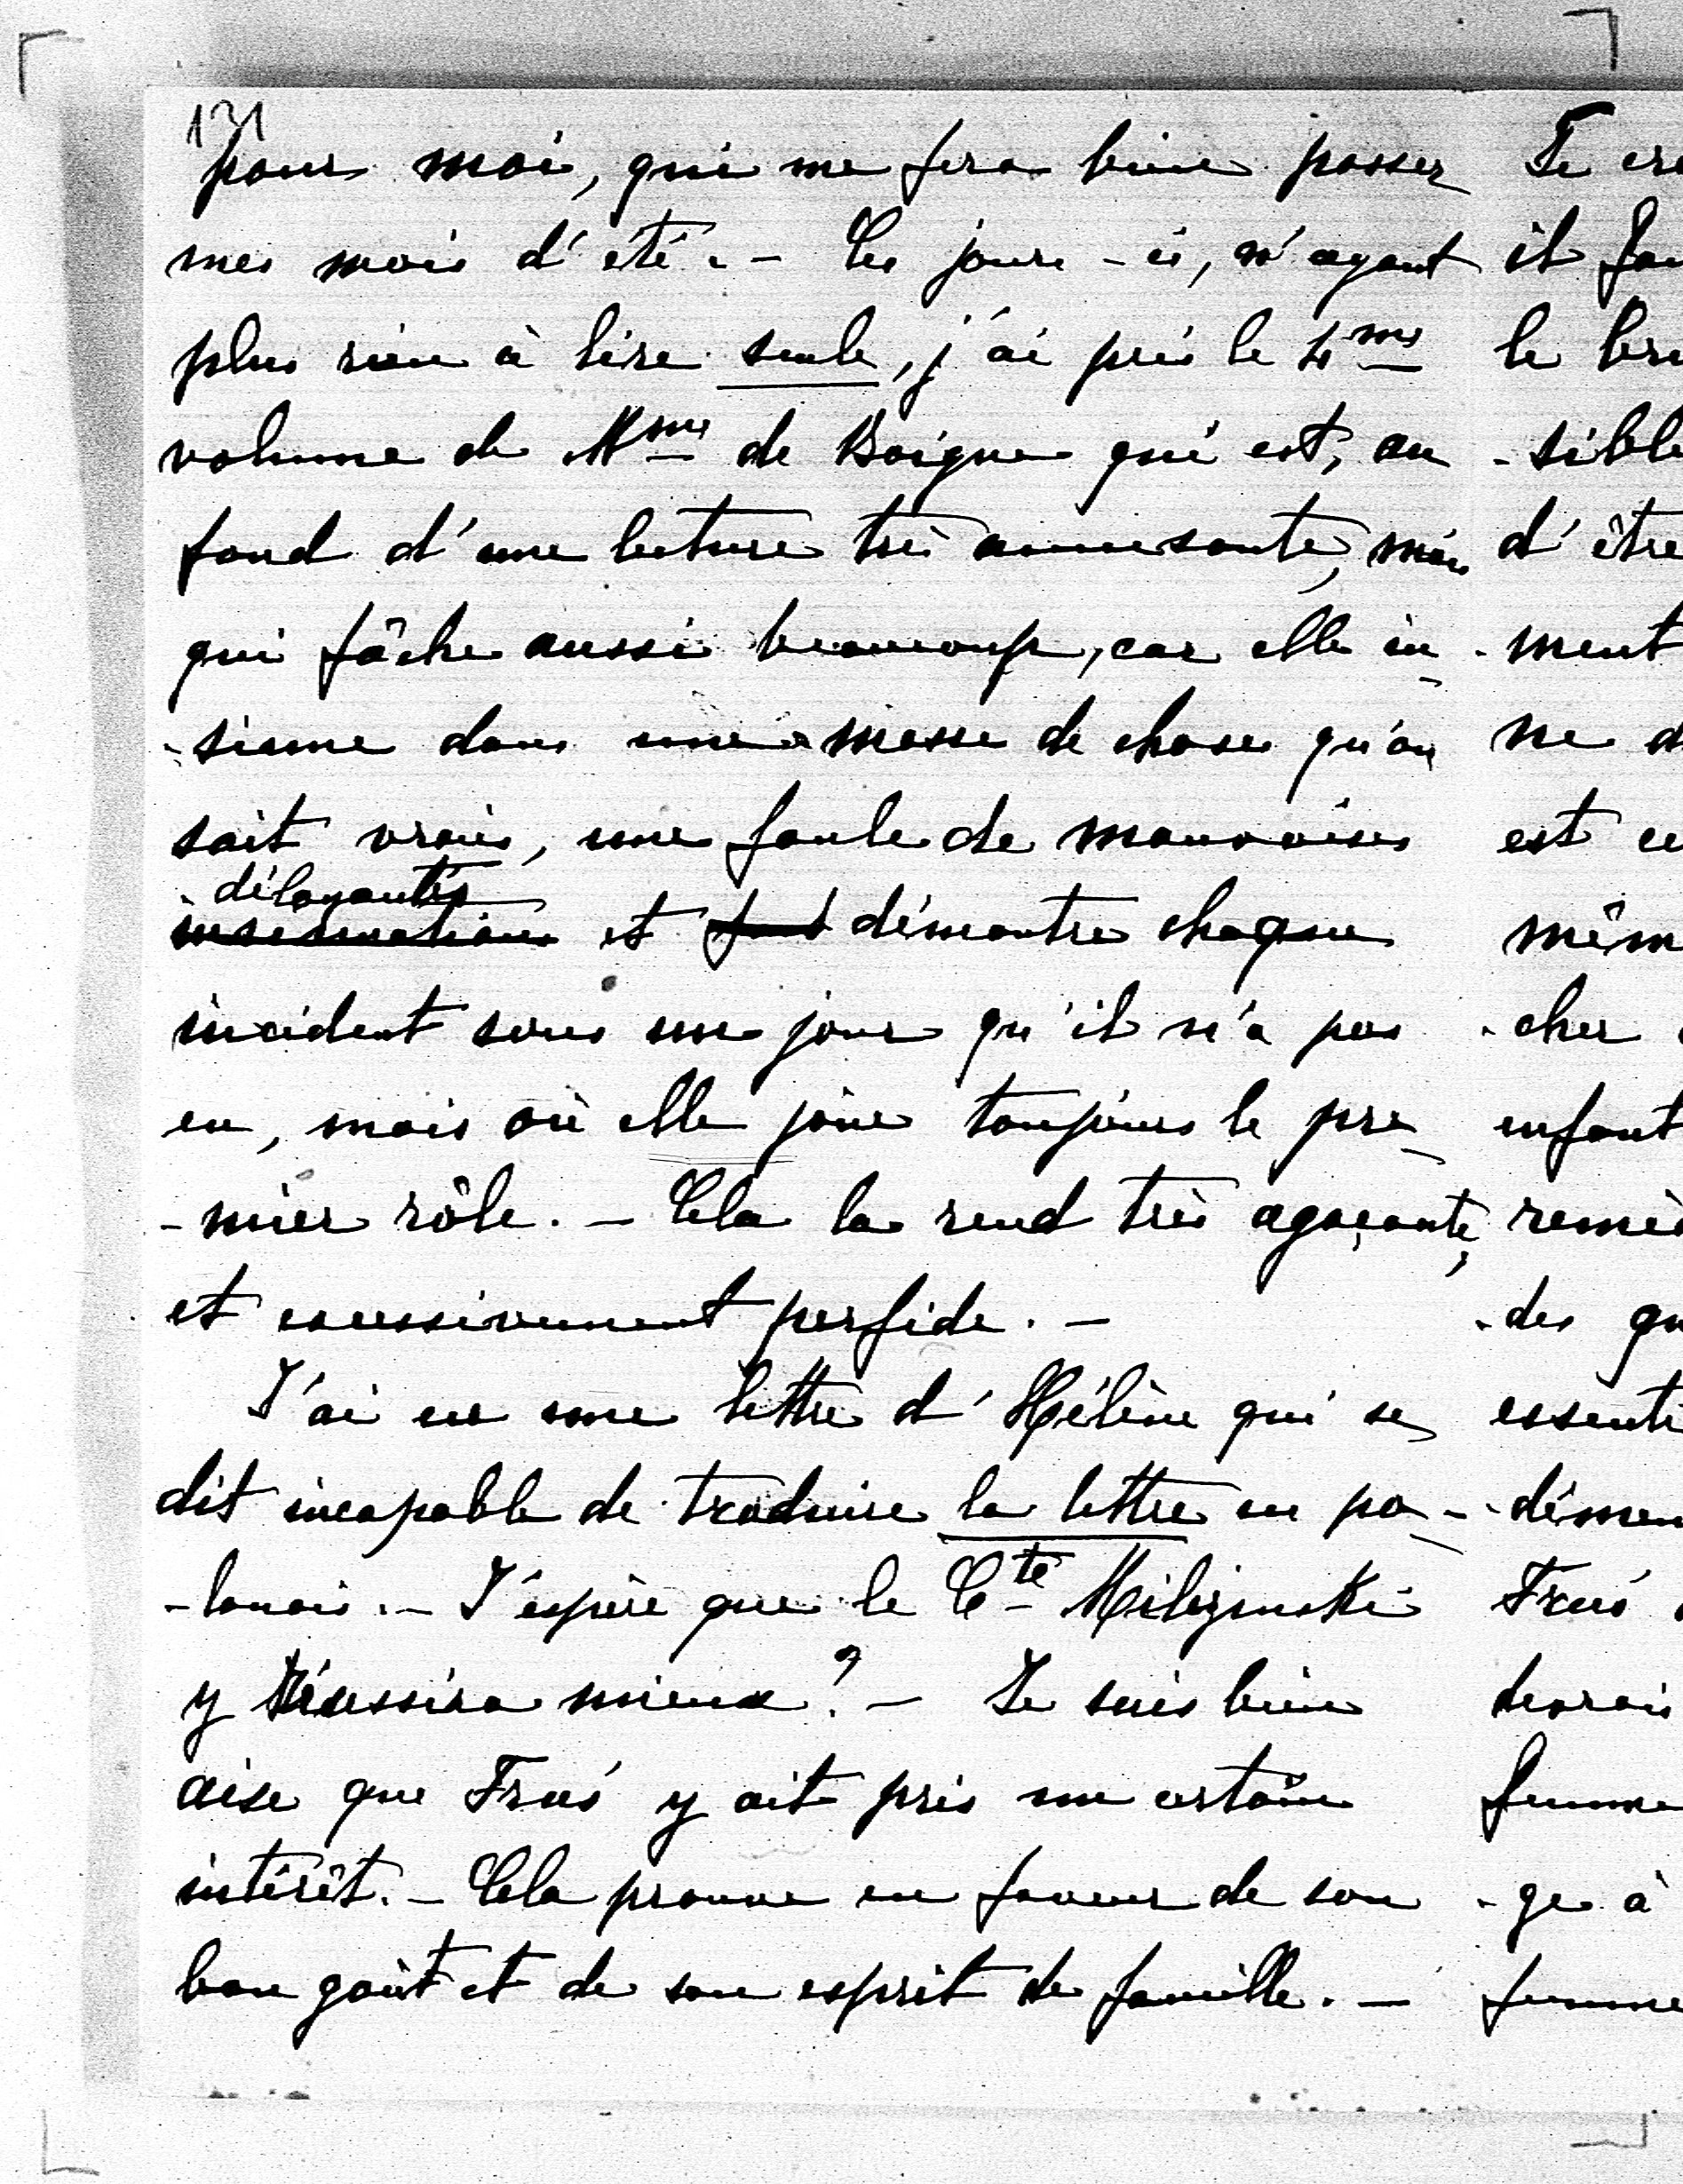 131
pour moi, qui me fera bien passer
mes mois d'été. - Ces jours-ci, n'ayant
plus rien à lire seule, j'ai pris le 4me
volume de Mme de Boigne qui est, au
fond d'une lecture très amusante, mais
qui fâche aussi beaucoup, car elle in-
-sinue dans une masse de choses qu'on
sait vraies, une foule de mauvaises
déloyautés
insinuations et fond démontre chaque
incident sous un jour qu'il n'a pas
eu, mais où elle joue toujours le pre-
-mier rôle. - Cela la rend très agaçante,
et excessivement perfide. -
J'ai eu une lettre d'Hélène qui se
dit incapable de traduire la lettre en po-
-lonais. - J'espère que le Cte
y réussira mieux? - Je suis bien
aise que y ait pris un certain
intérêt. - Cela prouve en faveur de son
bon goût et de son esprit de famille. -
Je
il
le
-sible
d'être
-ment
ne
est
-cher
enfant
-des